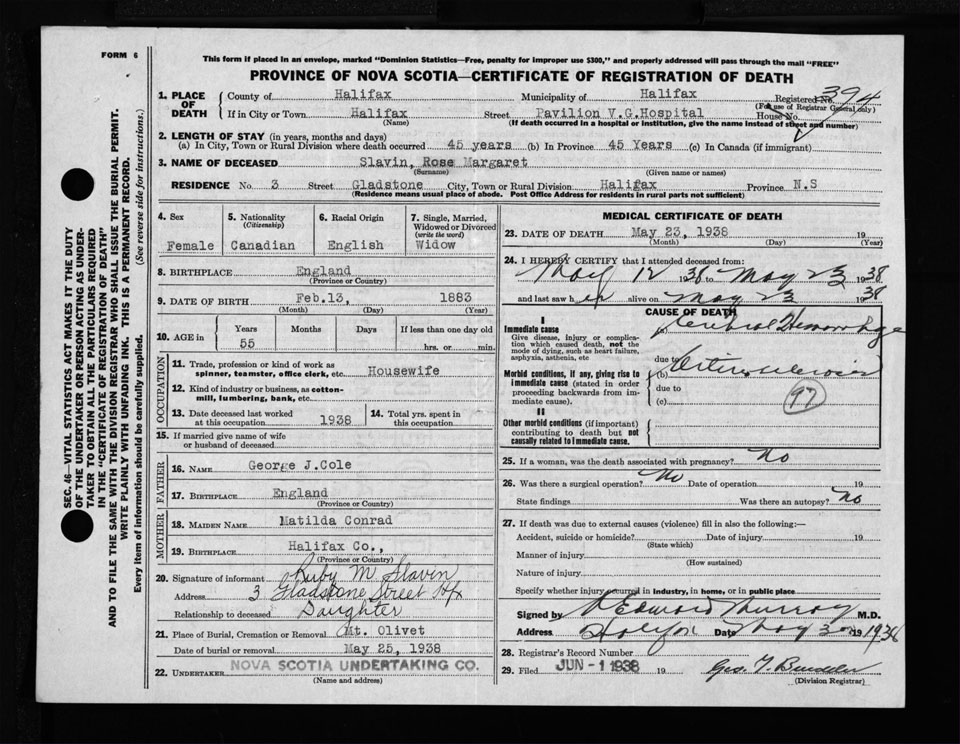 FORM 6
This form if placed in an envelope, marked "Dominion Statistics—Free, penalty for improper use $300," and properly addressed will pass through the mail "FREE"
PROVINCE OF NOVA SCOTIA—CERTIFICATE OF REGISTRATION OF DEATH
SEC. 46—VITAL STATISTICS ACT MAKES IT THE DUTY
OF THE UNDERTAKER OR PERSON ACTING AS UNDER-
TAKER TO OBTAIN ALL THE PARTICULARS REQUIRED
IN THE "CERTIFICATE OF REGISTRATION OF DEATH"
AND TO FILE THE SAME WITH THE DIVISION REGISTRAR WHO SHALL ISSUE THE BURIAL PERMIT.
WRITE PLAINLY WITH UNFADING INK. THIS IS A PERMANENT RECORD.
Every item of information should be carefully supplied. (See reverse side for instructions.)
1. PLACE OF DEATH
County of Halifax Municipality of Halifax Registered No. 394
(For use of Registrar General only)
If in City or Town Halifax Street Pavilion V.G.Hospital House No.
(Name) (If death occurred in a hospital or institution, give the name instead of street and number)
2. LENGTH OF STAY (in years, months and days)
(a) In City, Town or Rural Division where death occurred 45 years (b) In Province 45 Years (c) In Canada (if immigrant)
3. NAME OF DECEASED Slavin, Rose Margaret
(Surname) (Given name or names)
RESIDENCE No. 3 Street Gladstone City, Town or Rural Division Halifax Province N.S
(Residence means usual place of abode. Post Office Address for residents in rural parts not sufficient)
4. Sex Female
5. Nationality (Citizenship) Canadian
6. Racial Origin English
7. Single, Married, Widowed or Divorced (write the word) Widow
8. BIRTHPLACE England
(Province or Country)
9. DATE OF BIRTH Feb.13, 1883
(Month) (Day) (Year)
10. AGE in Years Months Days If less than one day old
55 hrs. or min.
OCCUPATION
11. Trade, profession or kind of work as spinner, teamster, office clerk, etc. Housewife
12. Kind of industry or business, as cotton-mill, lumbering, bank, etc.
13. Date deceased last worked at this occupation 1938
14. Total yrs. spent in this occupation
15. If married give name of wife or husband of deceased
FATHER
16. NAME George J.Cole
17. BIRTHPLACE England
(Province or Country)
MOTHER
18. MAIDEN NAME Matilda Conrad
19. BIRTHPLACE Halifax Co.,
(Province or Country)
20. Signature of informant Ruby M Slavin
Address 3 Gladstone Street Hfx
Relationship to deceased Daughter
21. Place of Burial, Cremation or Removal Mt. Olivet
Date of burial or removal May 25, 1938
22. UNDERTAKER NOVA SCOTIA UNDERTAKING CO.
(Name and address)
MEDICAL CERTIFICATE OF DEATH
23. DATE OF DEATH May 23, 1938 19
(Month) (Day) (Year)
24. I HEREBY CERTIFY that I attended deceased from:
May 12 1938 to May 23 1938
and last saw her alive on May 23 1938
CAUSE OF DEATH
I
Immediate cause
Give disease, injury or complication which caused death, not the mode of dying, such as heart failure, asphyxia, asthenia, etc
(a) Cerebral Hemorrhage
due to
Morbid conditions, if any, giving rise to immediate cause (stated in order proceeding backwards from immediate cause).
(b)
due to
(c)
97
II
Other morbid conditions (if important) contributing to death but not causally related to immediate cause.
25. If a woman, was the death associated with pregnancy? No
26. Was there a surgical operation? No Date of operation 19
State findings Was there an autopsy? No
27. If death was due to external causes (violence) fill in also the following:—
Accident, suicide or homicide? Date of injury 19
(State which)
Manner of injury
(How sustained)
Nature of injury
Specify whether injury occurred in industry, in home, or in public place
Signed by Edward Murray M.D.
Address Halifax Date May 19 1938
28. Registrar's Record Number
29. Filed JUN - 1 1938 19 Geo. T.
(Division Registrar)